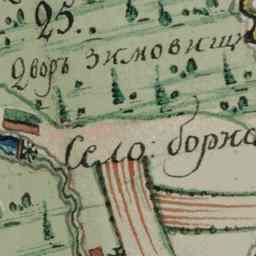 25.
Дворъ зимовищ
Село: борка